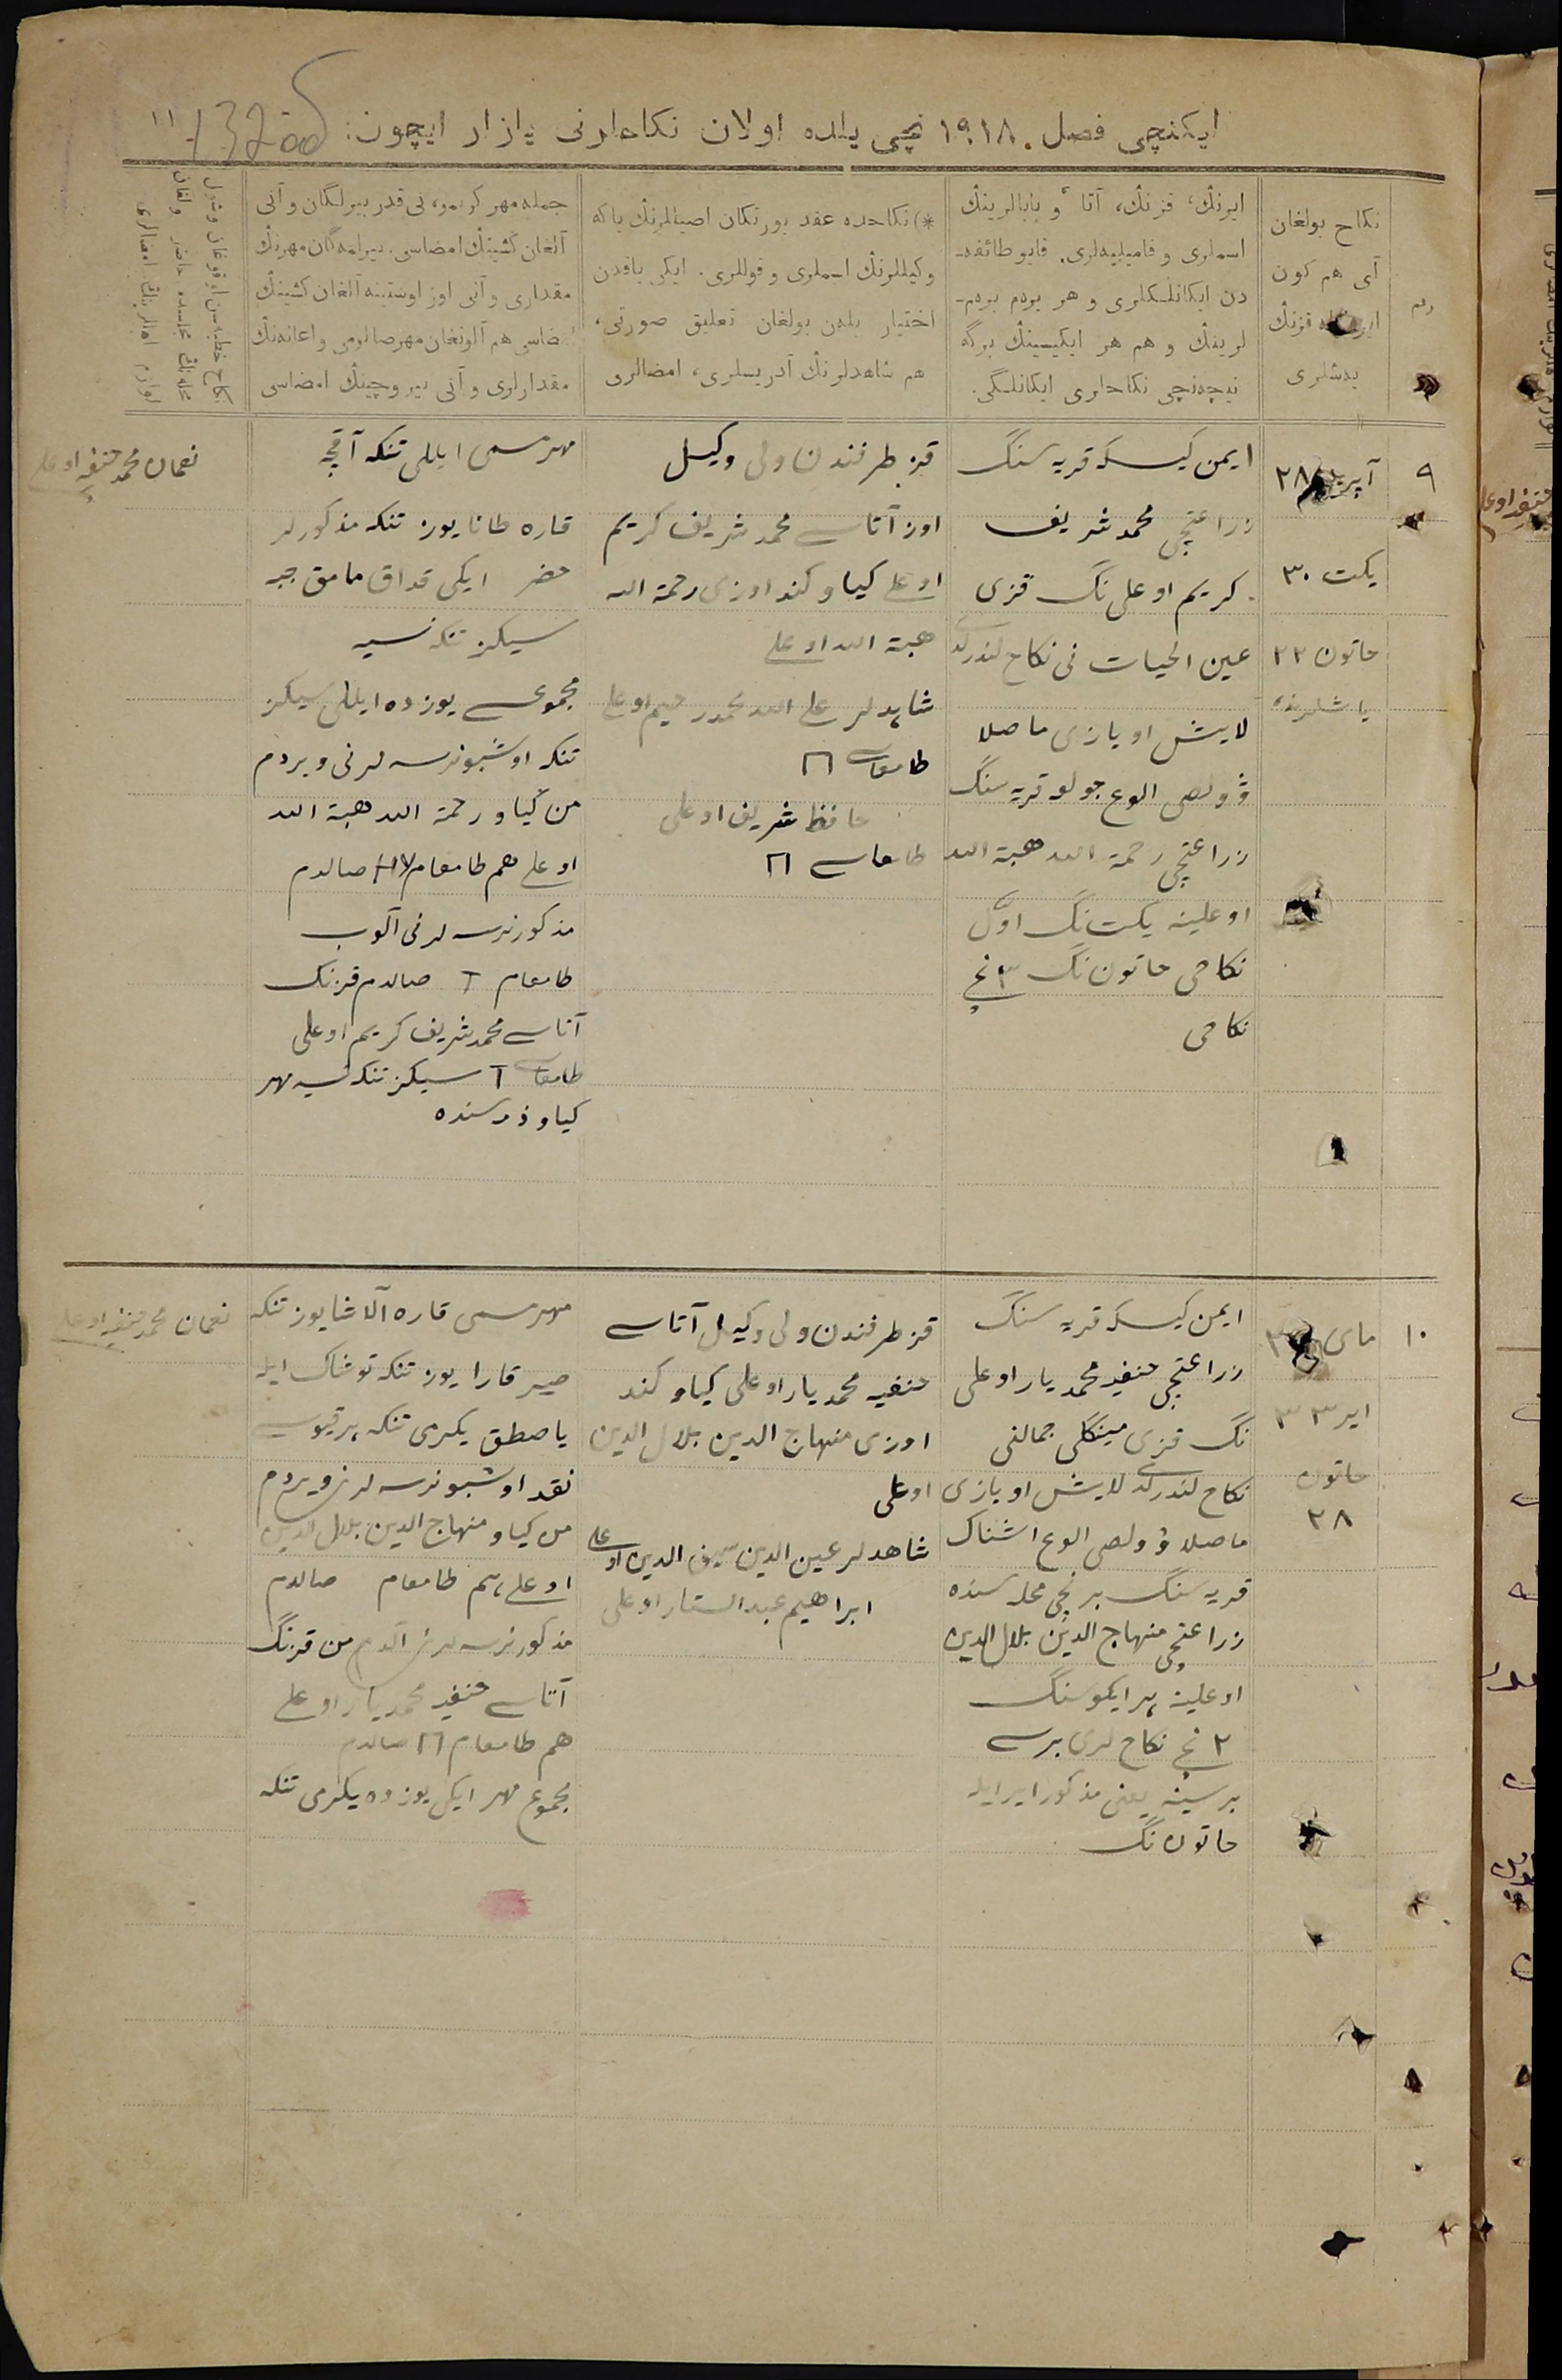 ایکنچی فصل. ۱۹۱۸ نچی یلده اولان نکاحلرنی یازار ایچون:
۱۱
نکاح بولغان
آی هم کون
قزنڭ
یەشلری
ایرنڭ، قزنڭ، آتا و بابالرینڭ
اسملری و فامیلیەلری. قایو طائفه-
دن ایکانلکلری و هر بردم بردم-
لرینڭ و هم هر ایکیسینڭ برگه
نیچەنچی نکاحلری ایکانلگی.
*) نکاحده عقد یورتکان اصیللرنڭ یا که
وکیللرنڭ اسملری و قوللری. ایکی یاقدن
اختیار بلەن بولغان تعلیق صورتی،
هم شاهدلرنڭ آدریسلری، امضالری
جمله مهر کریمو، نی قدر بیرلگان و آنی
آلغان کشینڭ امضاسی. بیرلمەگان مهرنڭ
مقداری و آنی اوز اوستینه آلغان کشینڭ
امضاسی هم آلونغان مهر صانومی و اعانەنڭ
مقدارلری و آنی بیروچینڭ امضاسی
۹
آپریل ۲۸
یکت ۳۰
خاتون ۲۲
یاشلرنده
ایمن کیسکه قریه سنگ
زراعتچی محمد شریف
کریم اوغلی نگ قزی
عین الحیات نی نکاح لندردک
لایش اویازی ماصلا
ۋولصی الوغ جولو قریه سنگ
زراعتچی رحمة الله هبة الله
اوغلینه یکت نگ اوّل
نکاحی خاتون نگ ۳ نچی
نکاحی
قز طرفندن ولی وکیل
اوز آتاسی محمد شریف کریم
اوغلی کیاو کند اوزی رحمة الله
هبة الله اوغلی
شاهدلر علی الله محمدرحیم اوغلی
طامغاسی
حافظ شریف اوغلی
طامغاسی
مهر مسمی ایللی تنکه آقچه
قاره طانا یوز تنکه مذکورلر
حضر ایکی قداق مامق جبر
سیکز تنکه نسیه
مجموعسی یوز ده ایللی سیکز
تنکه اوشبو نرسه لرنی ویردم
من کیاو رحمة الله هبة الله
اوغلی هم طامغام صالدم
مذکور نرسه لرنی آلوب
طامغام صالدم قزنگ
آتاسی محمد شریف کریم اوغلی
طامغاسی سیکز تنکه نسیه مهر
کیاو ذمه سنده
نعمان محمد حنفیه اوغلی
۱۰
مای
ایر ۳۳
خاتون
۲۸
ایمن کیسکه قریه سنگ
زراعتچی حنفیه محمدیار اوغلی
نگ قزی مینگلی جمالنی
نکاح لندردک لایش اویازی
ماصلا ۋولصی الوغ اشناک
قریه سنگ برنچی محله سنده
زراعتچی منهاج الدین بلال الدین
اوغلینه هر ایکوسنگ
۲ نچی نکاح لری برسی
برسینه یعنی مذکور ایر ایله
خاتون نگ
قز طرفندن ولی وکیل آتاسی
حنفیه محمدیار اوغلی کیاو کند
اوزی منهاج الدین بلال الدین
اوغلی
شاهدلر عین الدین سیف الدین اوغلی
ابراهیم عبدالستار اوغلی
مهر مسمی قاره آلاشا یوز تنکه
صیر قارا یوز تنکه توشاک ایله
یاصطق یکرمی تنکه
نقد اوشبو نرسه لرنی ویردم
من کیاو منهاج الدین بلال الدین
اوغلی هم طامغام صالدم
مذکور نرسه لرنی آلدم من قزنگ
آتاسی حنفیه محمدیار اوغلی
هم طامغام صالدم
مجموع مهر ایکی یوز ده یکرمی تنکه
نعمان محمد حنفیه اوغلی